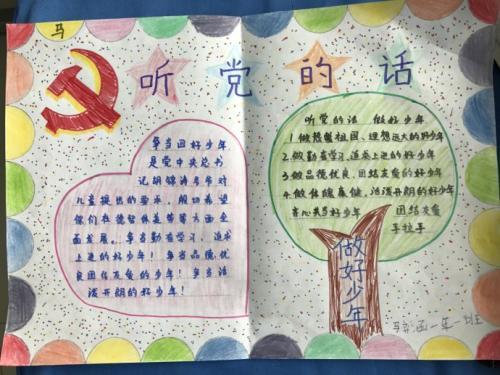 马
听党的话
争当四好少年
是党中央总书
记胡锦涛爷爷对
儿童提出的要求，殷切希望
你们在德智体美等等方面全
面发展。争当勤奋学习、追求
上进的好少年！争当品德优
良团结友爱的少年！争当活
泼开朗的好少年！
听党的话 做好少年
1.做热爱祖国、理想远大的好少年
2.做勤奋学习、追求上进的好少年
3.做品德优良、团结友爱的好少年
4.做体魄康健、活泼开朗的好少年
齐心共当好少年 团结友爱
手拉手
做好少年
一年一班